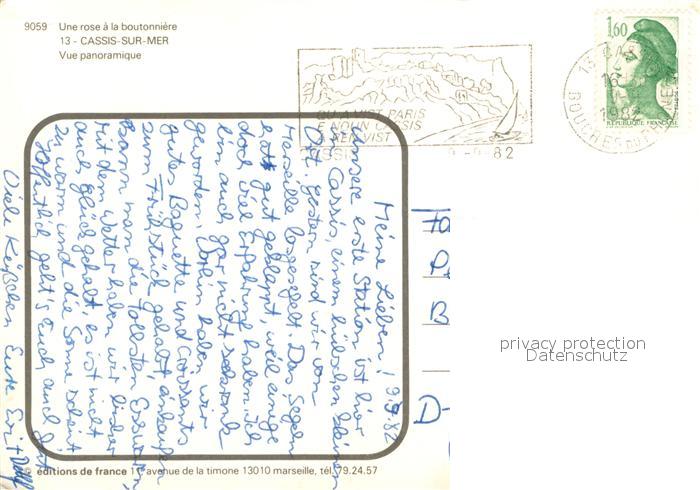 9059 Une rose à la boutonnière
13 - CASSIS-SUR-MER
Vue panoramique
1,60
REPUBLIQUE FRANÇAISE
13 CASSIS
16
1982
BOUCHES DU RHONE
QU A VIST PARIS
E NOUN CASSIS
A REN VIST
CASSIS
9 . 82
Meine Lieben! 9.9.82
Unsere erste Station ist hier
Cassis, einem hübschen kleinen
Ort. gestern sind wir von
Marseille losgesegelt. Das Segeln
hat gut geklappt, weil einige
doch viel Erfahrung haben. Ich
bin auch gar nicht seekrank
geworden. Vorhin haben wir
gutes Baguette und Croissants
zum Frühstück gehabt, einkaufen
kann man die tollsten Esswaren,
mit dem Wetter haben wir bisher
auch glück gehabt, es ist nicht
zu warm und die Sonne scheint
Hoffentlich geht's Euch auch gut
Viele Küßchen Eure
D-
© éditions de france 1 avenue de la timone 13010 marseille, tél. 79.24.57
privacy protection
Datenschutz